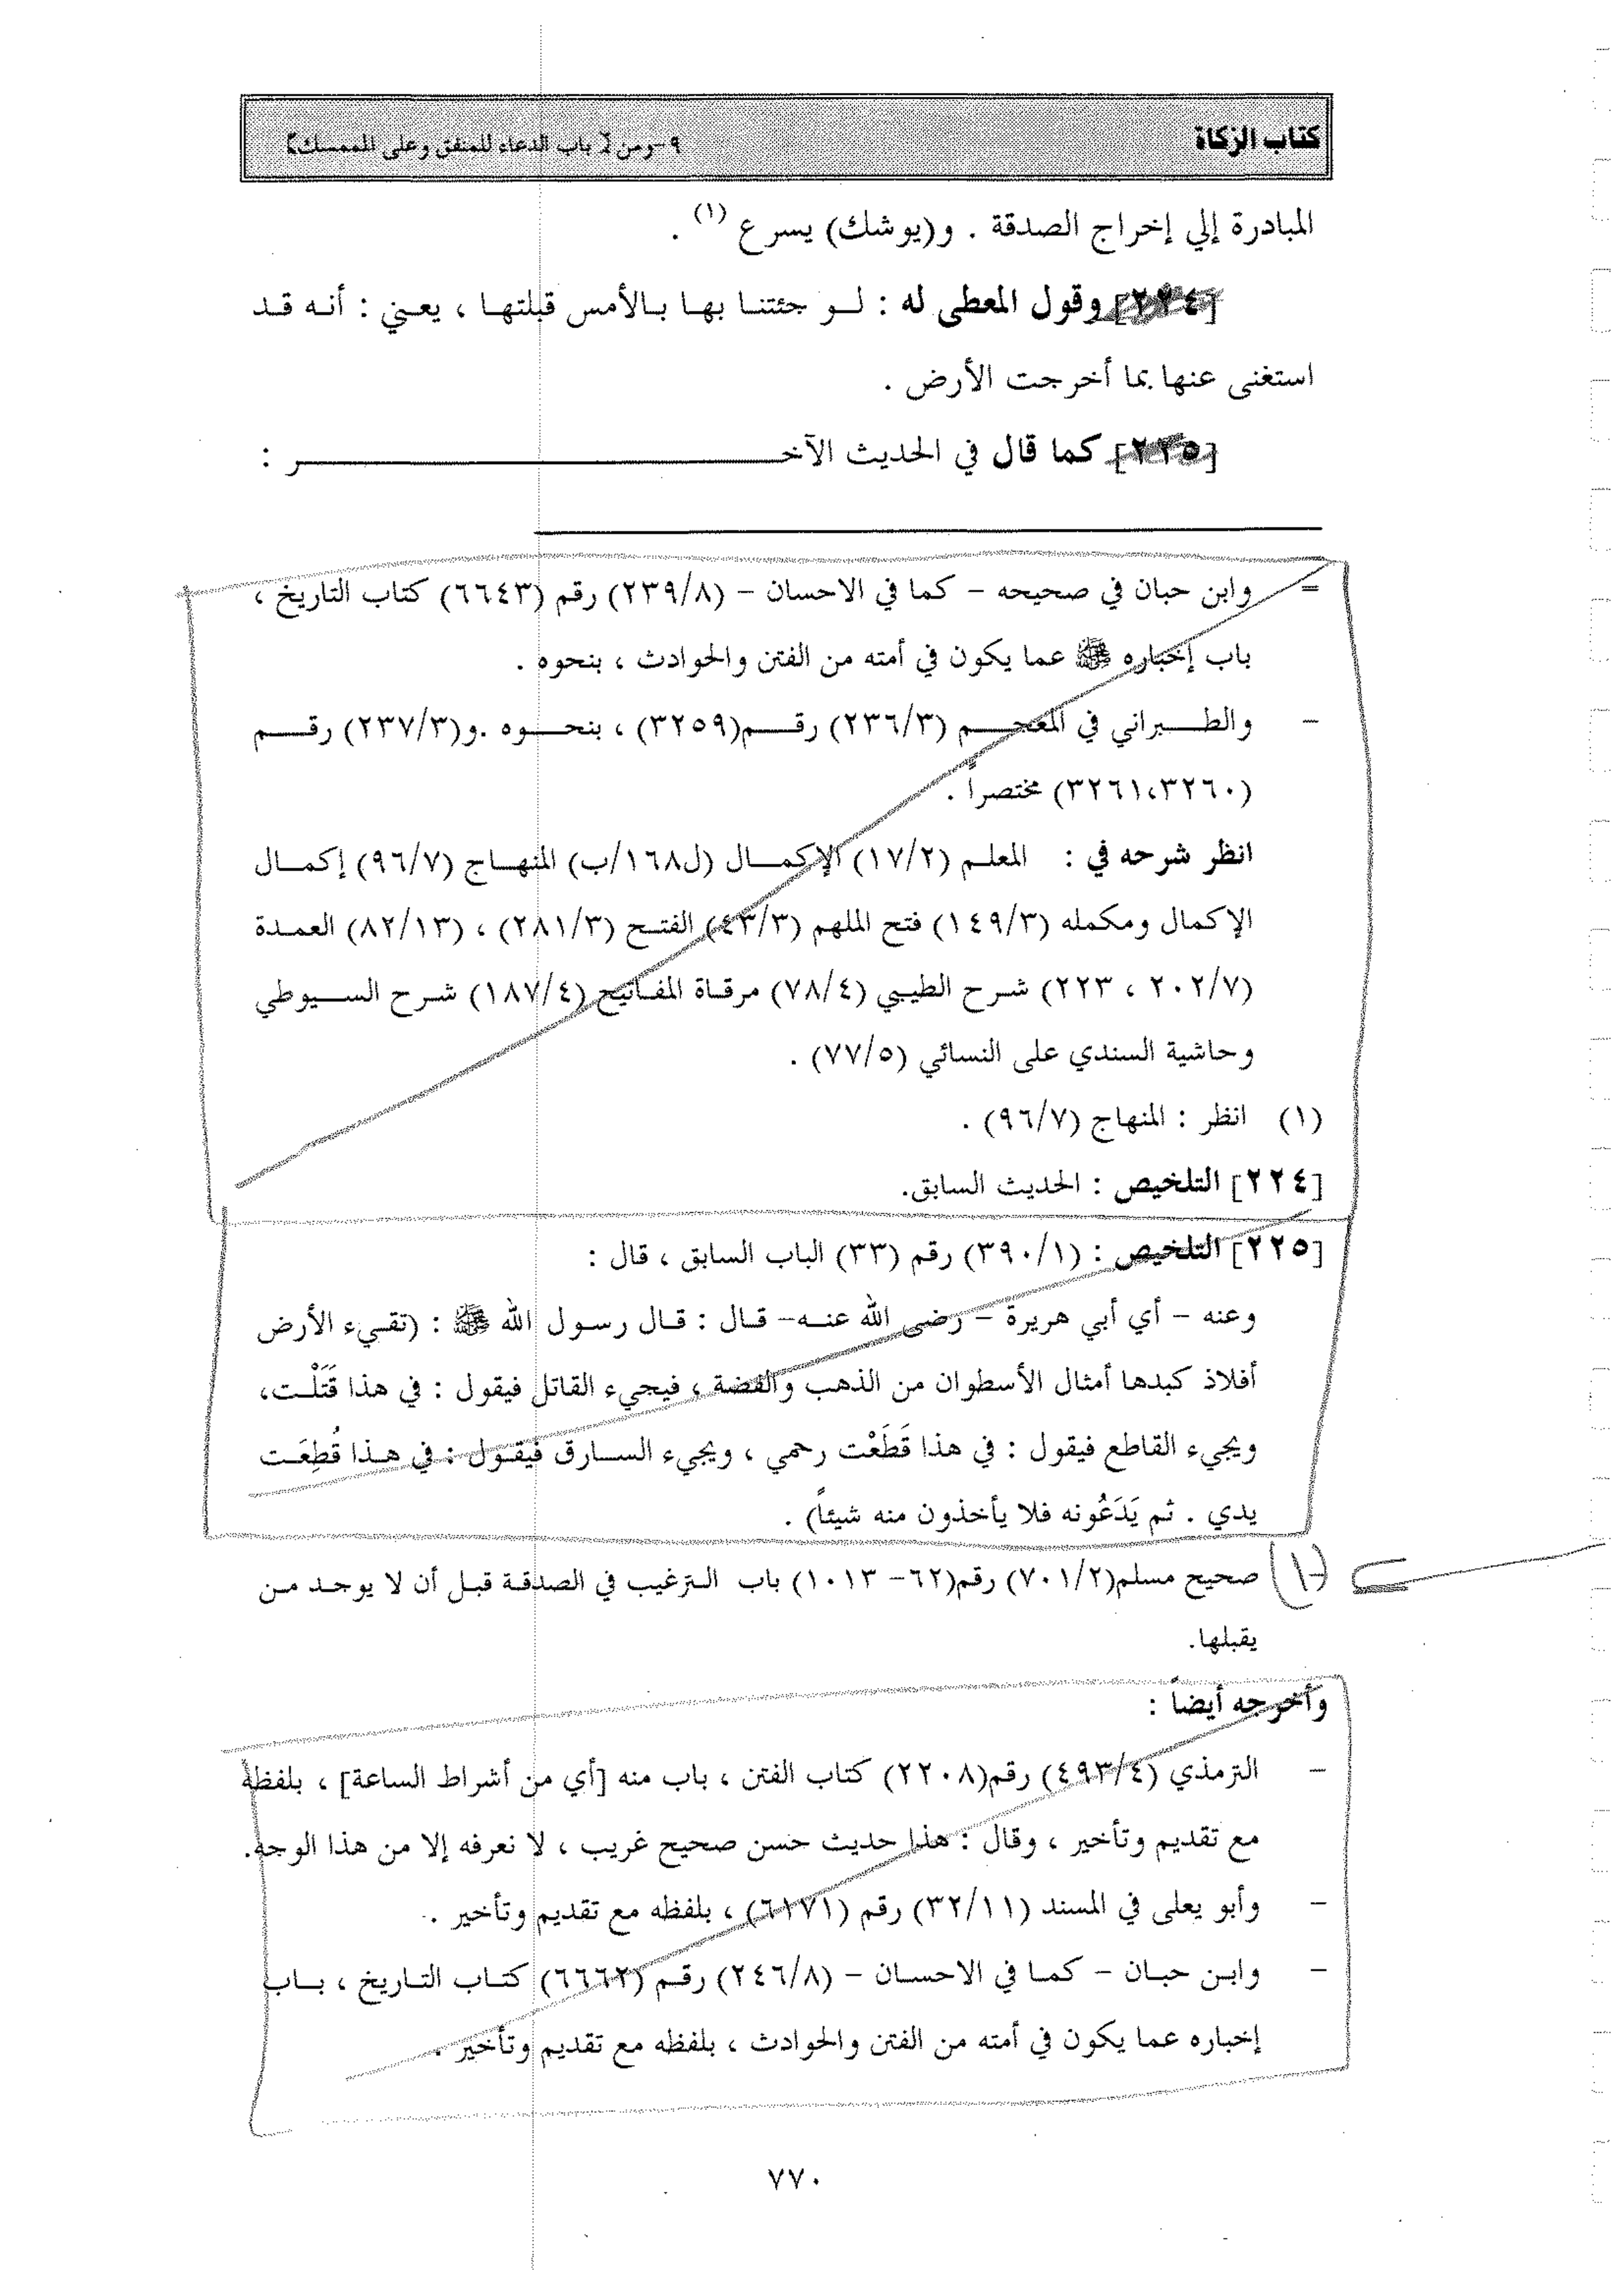 كتاب الزكاة
٩-ومن [ باب الدعاء للمنفق وعلى الممسك]
المبادرة إلي إخراج الصدقة . و(يوشك) يسرع (١) .
[٢٢٤] وقول المعطى له : لو جئتنا بها بالأمس قبلتها ، يعني : أنه قد
استغنى عنها بما أخرجت الأرض .
[٢٢٥] كما قال في الحديث الآخر :
= وابن حبان في صحيحه - كما في الاحسان - (٢٣٩/٨) رقم (٦٦٤٣) كتاب التاريخ ،
باب إخباره ﷺ عما يكون في أمته من الفتن والحوادث ، بنحوه .
- والطبراني في المعجم (٢٣٦/٣) رقم(٣٢٥٩) ، بنحوه .و(٢٣٧/٣) رقم
(٣٢٦١،٣٢٦٠) مختصراً .
انظر شرحه في : المعلم (١٧/٢) الإكمال (ل١٦٨/ب) المنهاج (٩٦/٧) إكمال
الإكمال ومكمله (١٤٩/٣) فتح الملهم (٤٣/٣) الفتح (٢٨١/٣) ، (٨٢/١٣) العمدة
(٢٠٢/٧ ، ٢٢٣) شرح الطيبي (٧٨/٤) مرقاة المفاتيح (١٨٧/٤) شرح السيوطي
وحاشية السندي على النسائي (٧٧/٥) .
(١) انظر : المنهاج (٩٦/٧) .
[٢٢٤] التلخيص : الحديث السابق.
[٢٢٥] التلخيص : (٣٩٠/١) رقم (٣٣) الباب السابق ، قال :
وعنه - أي أبي هريرة - رضى الله عنه- قال : قال رسول الله ﷺ : (تقيء الأرض
أفلاذ كبدها أمثال الأسطوان من الذهب والفضة ، فيجيء القاتل فيقول : في هذا قَتَلْت،
ويجيء القاطع فيقول : في هذا قَطَعْت رحمي ، ويجيء السارق فيقول : في هذا قُطِعَت
يدي . ثم يَدَعُونه فلا يأخذون منه شيئاً) .
(١) صحيح مسلم(٧٠١/٢) رقم(٦٢- ١٠١٣) باب الترغيب في الصدقة قبل أن لا يوجد من
يقبلها.
وأخرجه أيضاً :
- الترمذي (٤٩٣/٤) رقم(٢٢٠٨) كتاب الفتن ، باب منه [أي من أشراط الساعة] ، بلفظه
مع تقديم وتأخير ، وقال : هذا حديث حسن صحيح غريب ، لا نعرفه إلا من هذا الوجه.
- وأبو يعلى في المسند (٣٢/١١) رقم (٦١٧١) ، بلفظه مع تقديم وتأخير .
- وابن حبان - كما في الاحسان - (٢٤٦/٨) رقم (٦٦٦٢) كتاب التاريخ ، باب
إخباره عما يكون في أمته من الفتن والحوادث ، بلفظه مع تقديم وتأخير .
٧٧٠